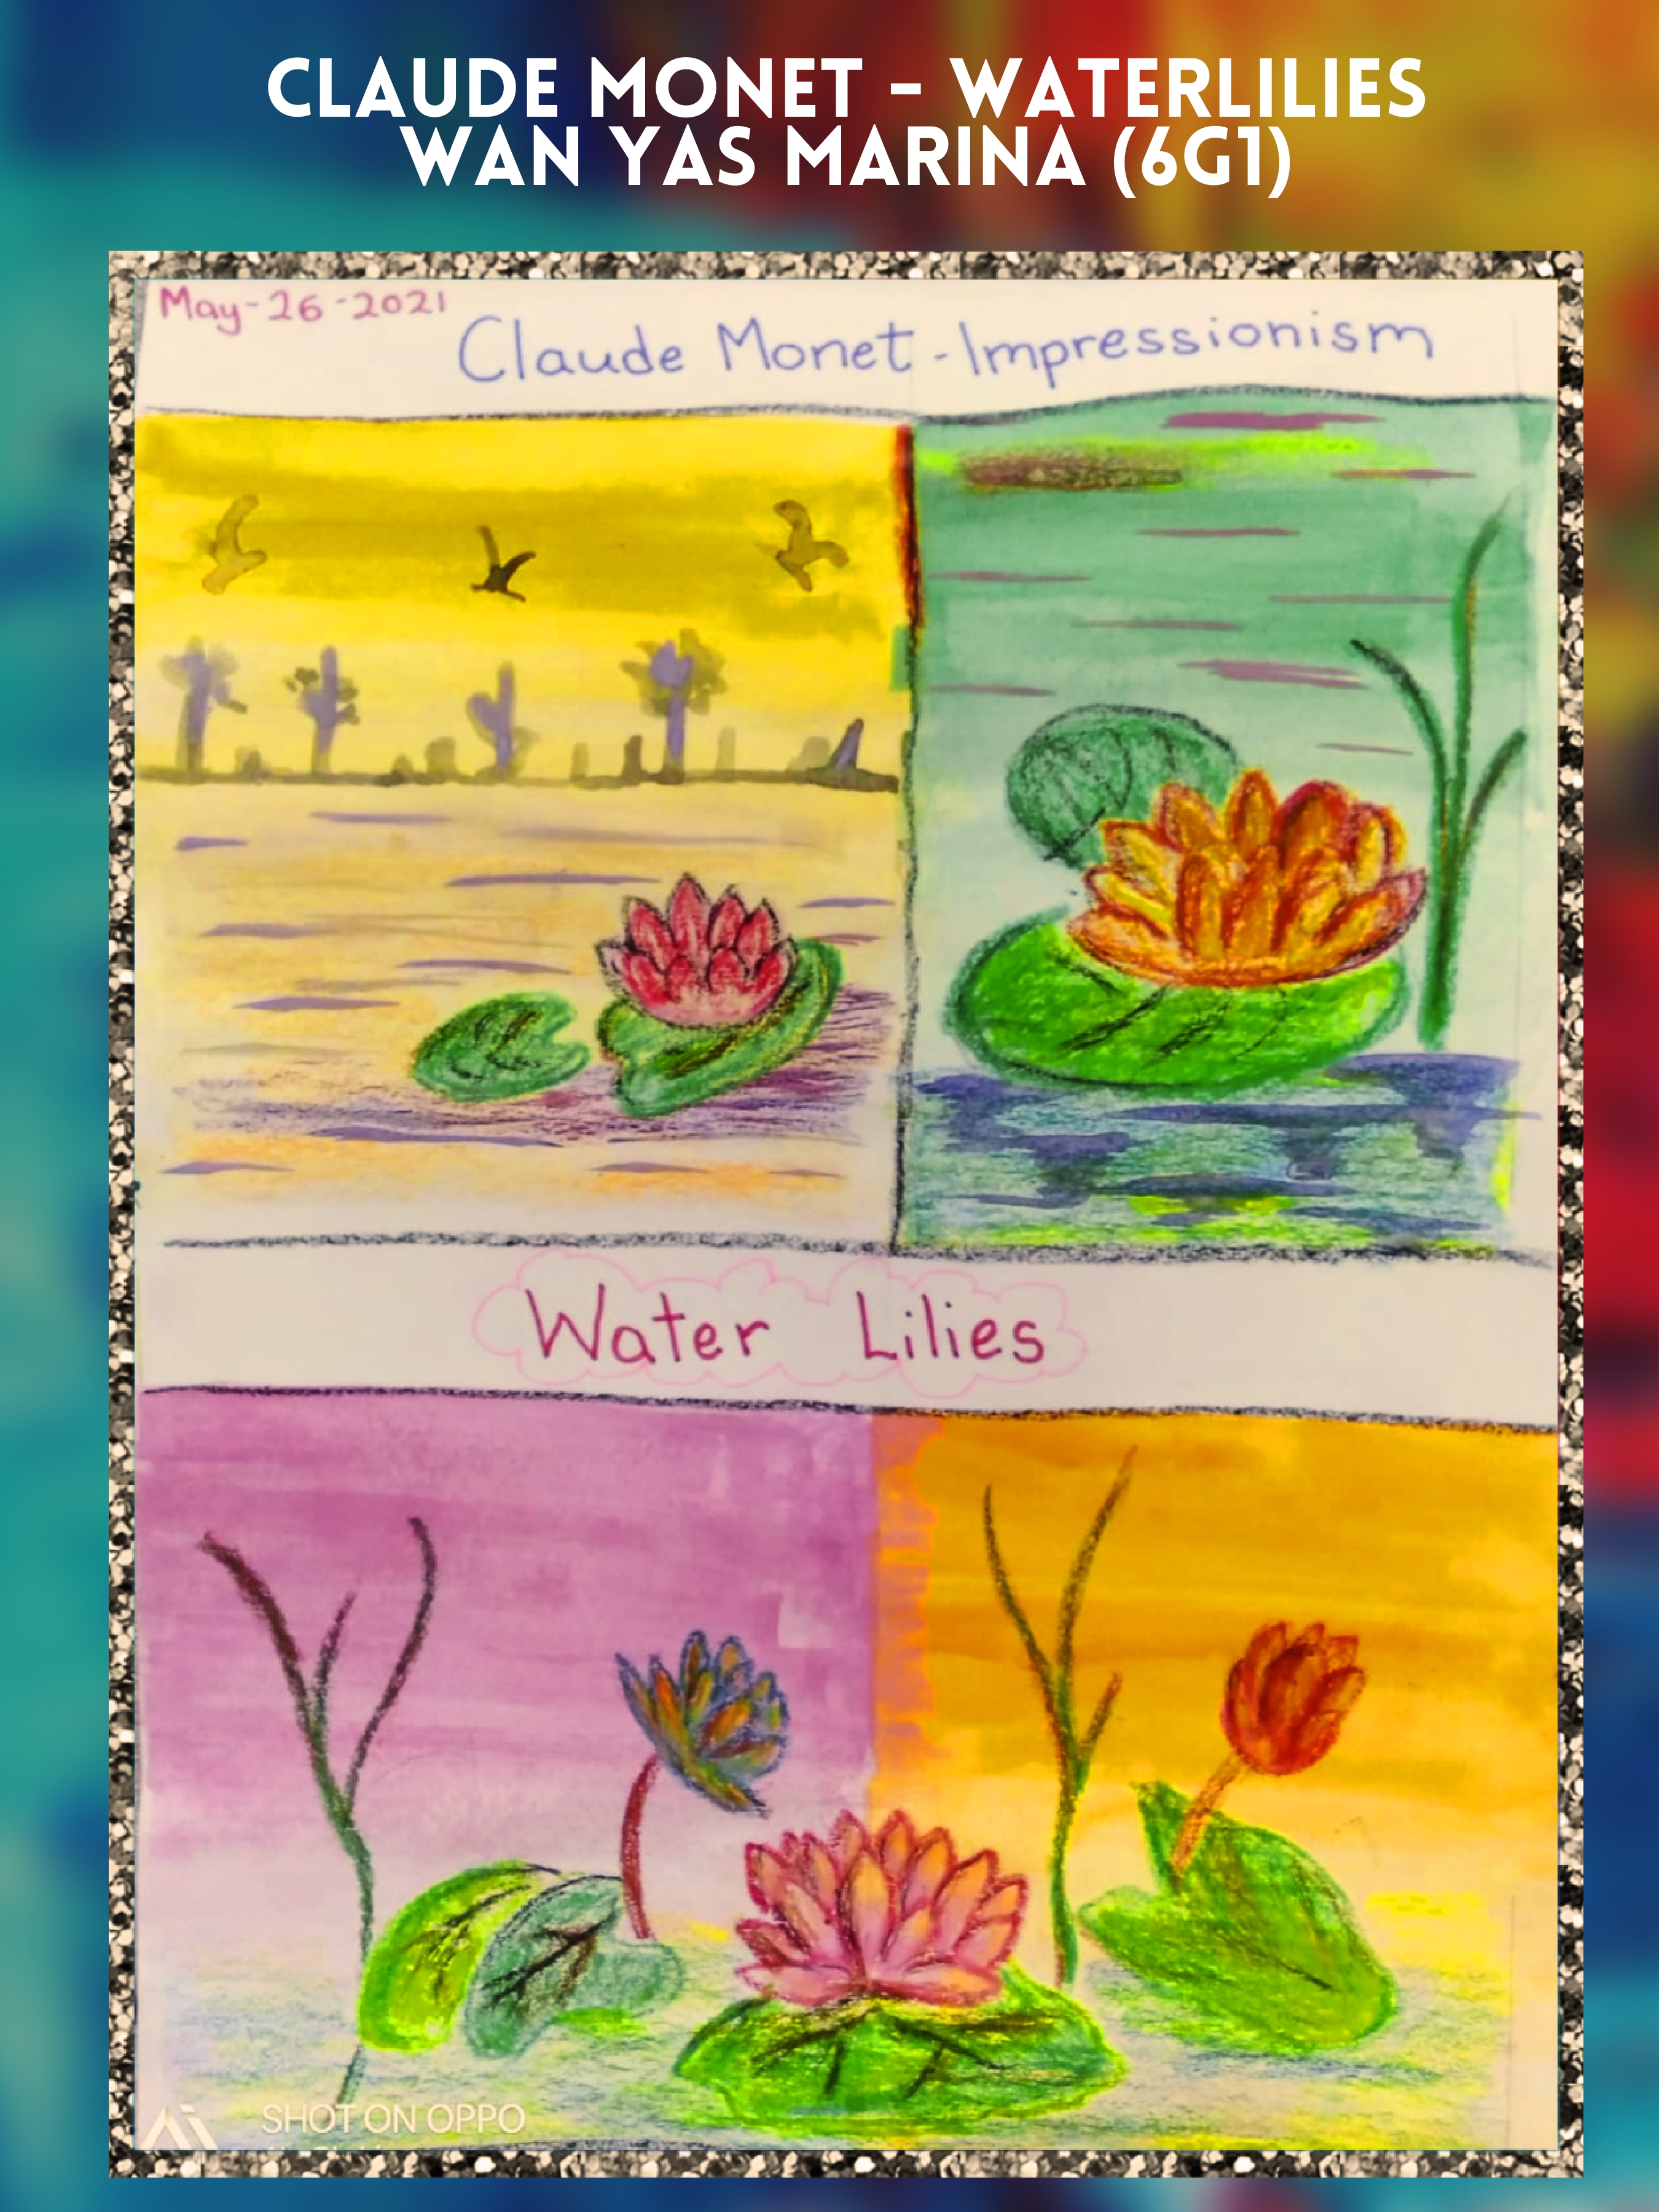 CLAUDE MONET - WATERLILIES
WAN YAS MARINA (6G1)
May-26-2021
Claude Monet-Impressionism
Water Lilies
SHOT ON OPPO